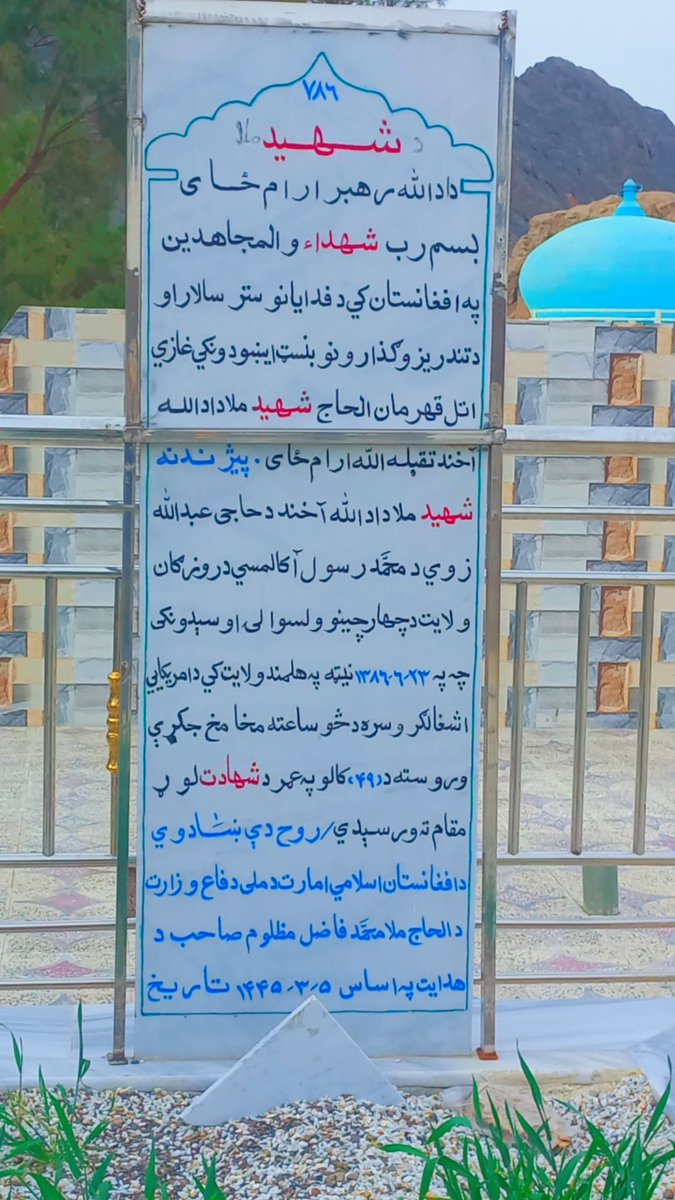 ۷۸۶
د شهید ملا
دادالله رهبر ارام ځای
بسم رب شهداء والمجاهدین
په افغانستان کي د فدایانو ستر سالار او
د تندریزو ګذارونو بنسټ ایښودونکي غازي
اتل قهرمان الحاج شهید ملا دادالله
آخند تقبله الله ارام ځای . پیژندنه
شهید ملا دادالله آخند د حاجی عبدالله
زوي د محمد رسول آکا لمسي د روزګان
ولایت د چهارچینو ولسوالۍ اوسېدونکی
چه په ۱۳۸۶-۶-۲۳ نیټه په هلمند ولایت کي د امریکایي
اشغالګرو سره د څو ساعته مخامخ جګړې
وروسته د (۴۹) کالو په عمر د شهادت لوړ
مقام ته ورسېدي/ روح دې ښاد وي
د افغانستان اسلامي امارت د ملی دفاع وزارت
د الحاج ملا محمد فاضل مظلوم صاحب د
هدایت په اساس ۵-۳-۱۴۴۵ تاریخ